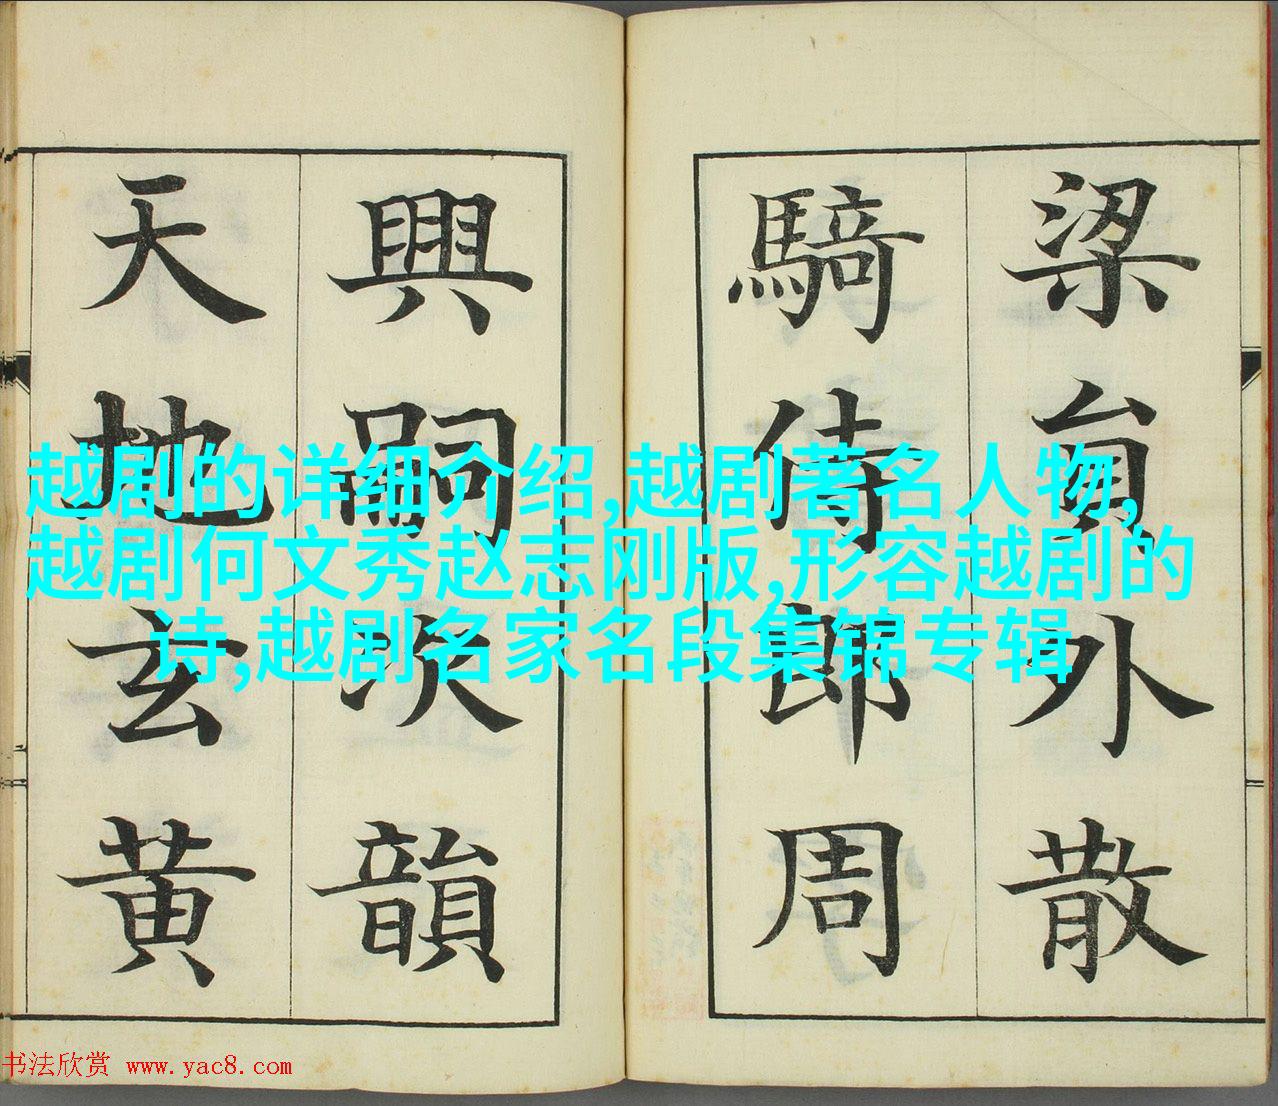 梁貟外散
騎侍郎周
興嗣次韻
天地玄黄
越剧的详细介绍,越剧著名人物,
越剧何文秀赵志刚版,形容越剧的
诗,越剧名家名段集锦专辑
书法欣赏 www.yac8.com